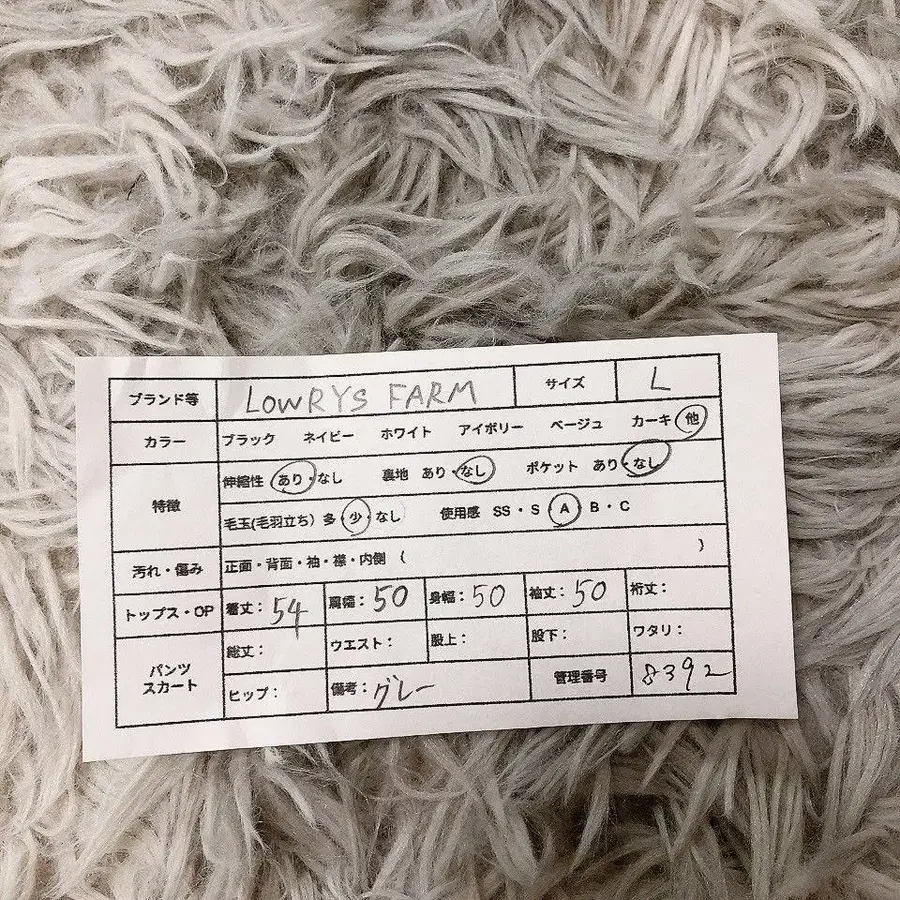 ブランド等 LOWRYS FARM サイズ L
カラー ブラック ネイビー ホワイト アイボリー ベージュ カーキ 他
特徴 伸縮性 あり・なし 裏地 あり・なし ポケット あり・なし
毛玉(毛羽立ち) 多・少・なし 使用感 SS・S・A・B・C
汚れ・傷み 正面・背面・袖・襟・内側 ( )
トップス・OP 着丈: 54 肩幅: 50 身幅: 50 袖丈: 50 裄丈:
パンツ スカート 総丈: ウエスト: 股上: 股下: ワタリ:
ヒップ: 備考: グレー 管理番号 8392